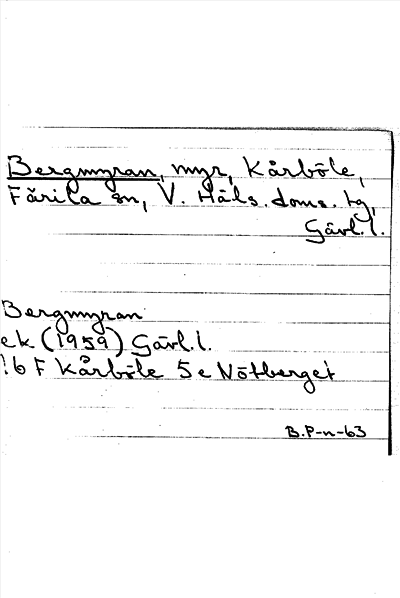 Bergmyran, myr, Kårböle,
Färila sn, V. Häls. doms. tg,
Gävl. l.
Bergmyran
ek (1959) Gävl. l.
16 F Kårböle 5 e Nötberget
B.P-n-63